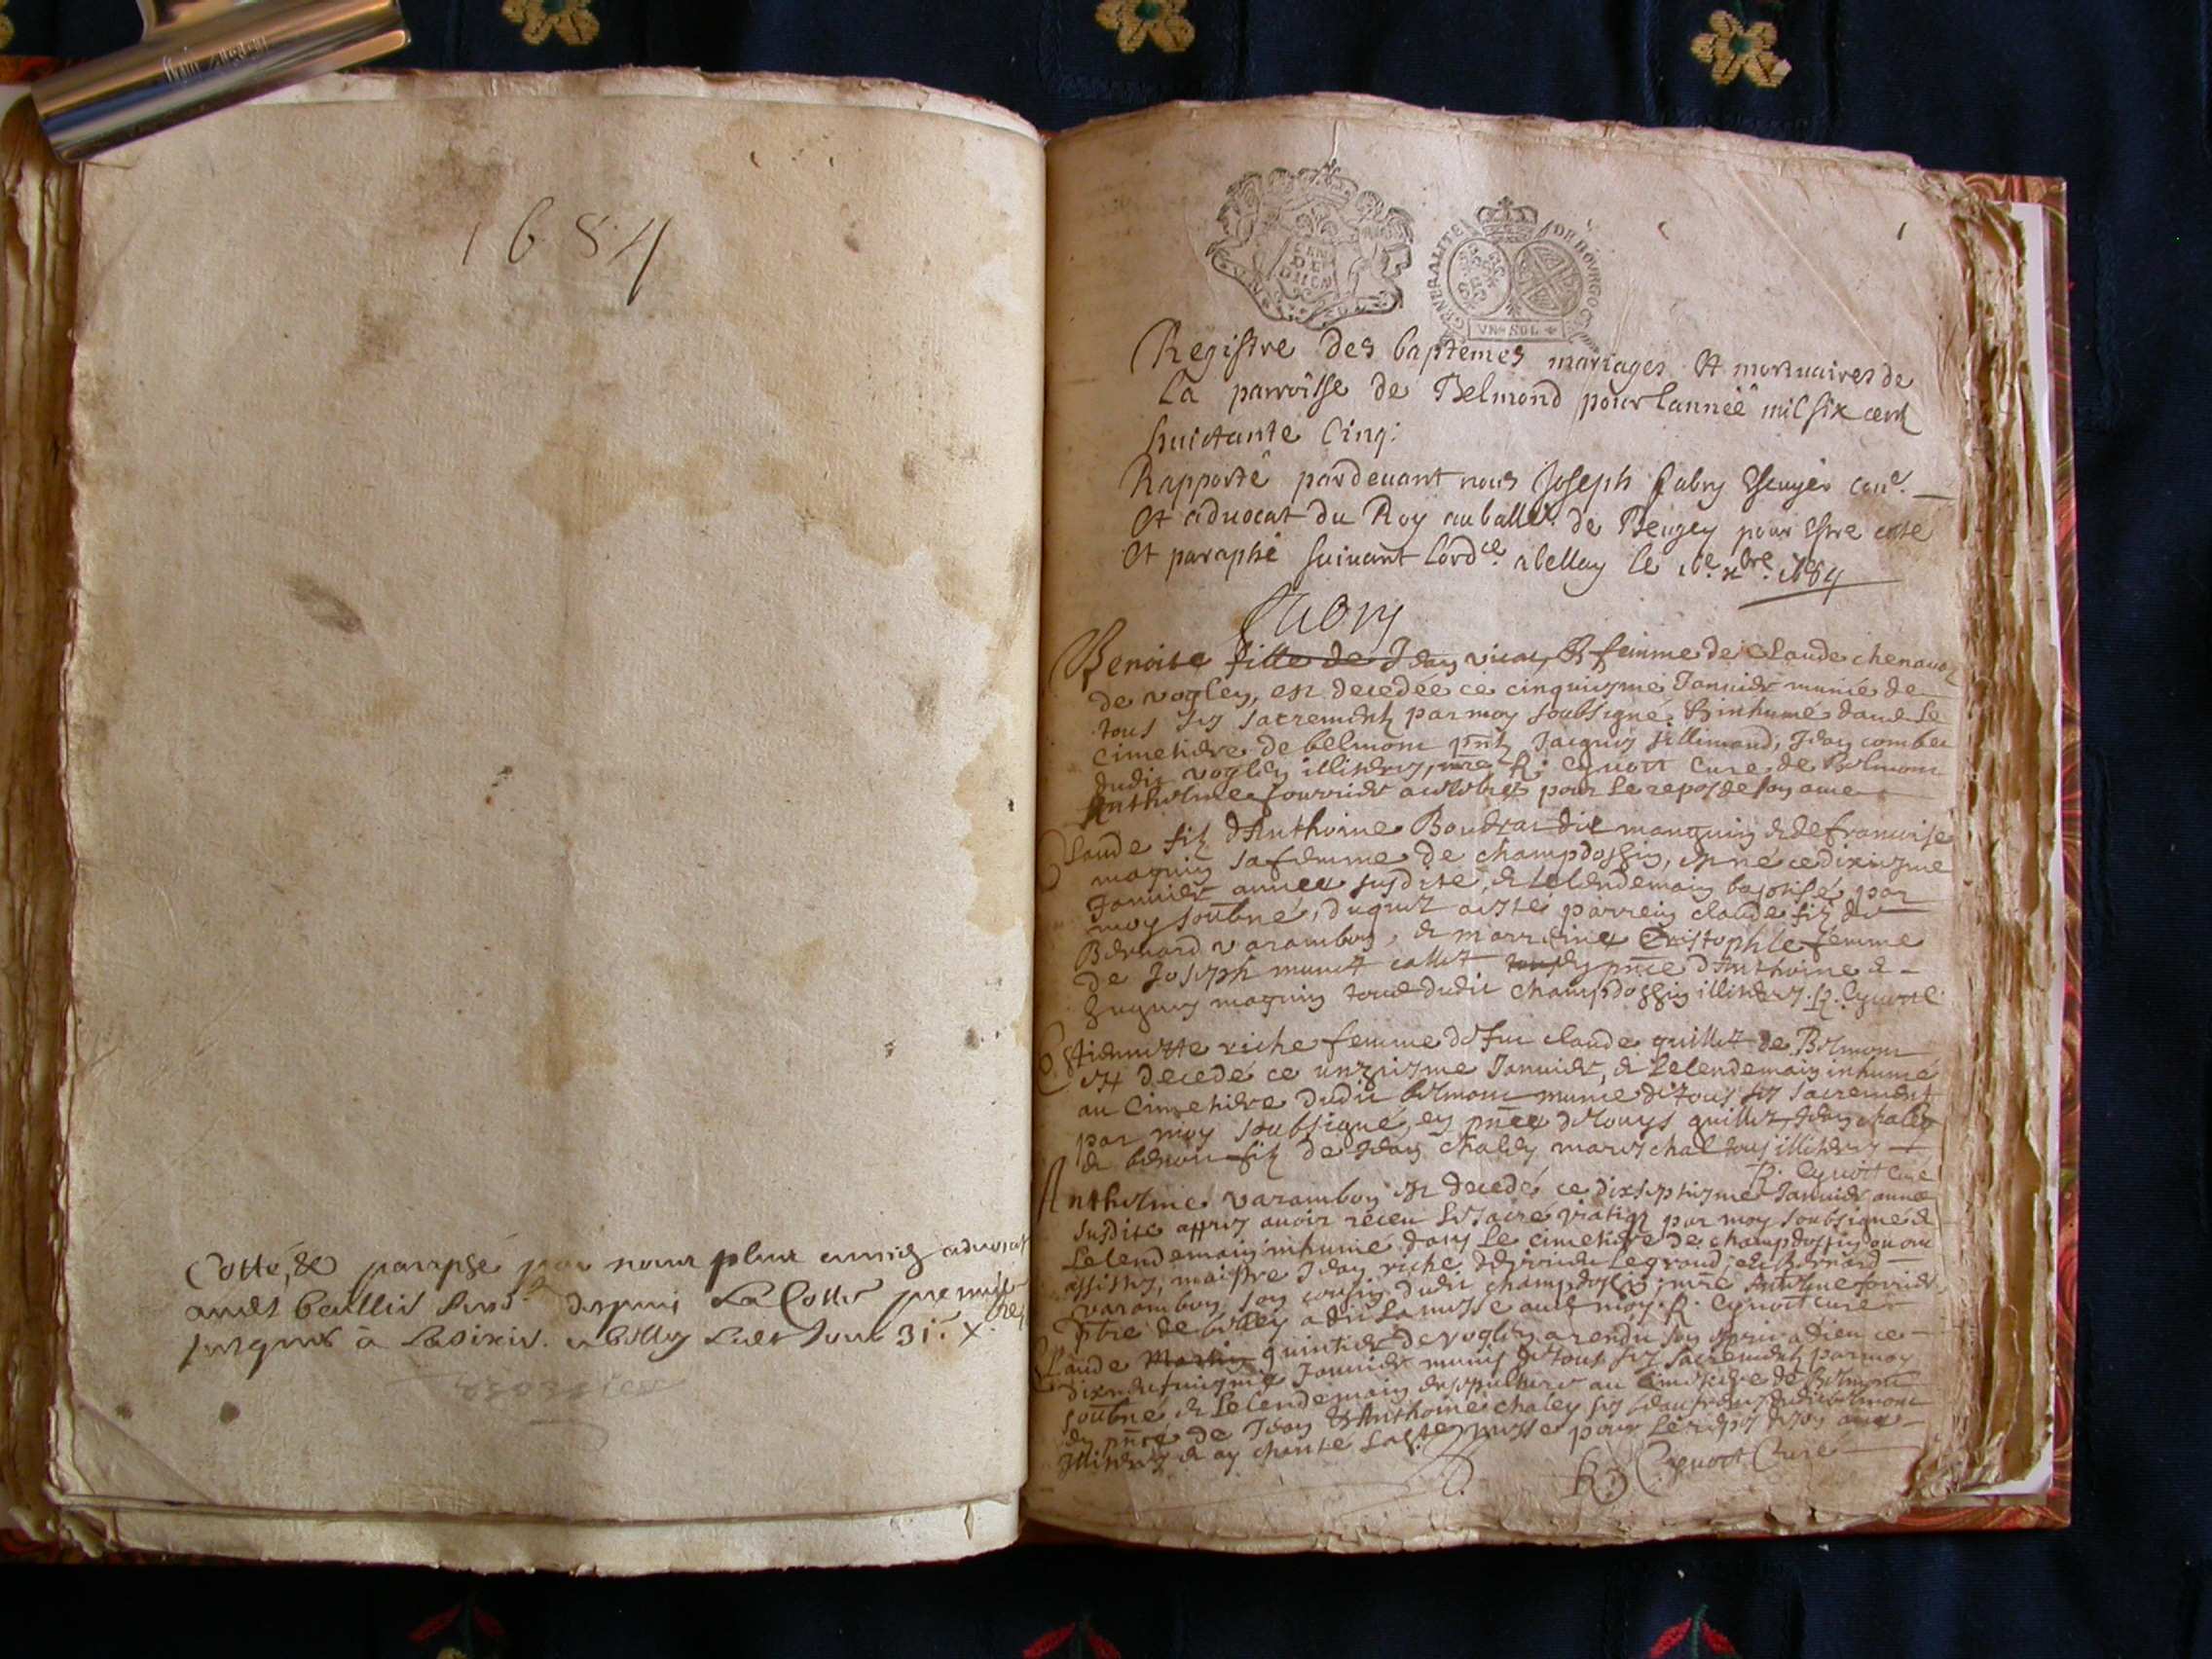 1684
Cotté, & paraphé par nous plus ancien advocat
jusques à La
31.
GENERALITE DE BOURGO
VN SOL
Registre des baptemes mariages Et mortuaires de
La parroisse de Belmond pour Lannéé mil six cent
huictante Cinq:
Rapporté pardevant nous Joseph fabry Escuyer con.er
Et advocat du Roy au balle. de Beugey pour Estre coté
Et paraphé suivant Lordce. a bellay le 16e xbre. 1684
fabry
Benoite fille de Jean B femme de Claude chenavaz
de vogley, est decedée ce cinquiesme Januier munie de
tous ses sacrements par moy soubsigné & inhumé dans le
Cimetiere de belmont pnts Jacques Jean combet
dudit vogley illiteres, mre R. Cyvoct Curé de Belmont
Anthelme pour le repos de son ame
Claude filz d'Anthoine Boudrat dit manguin & de francoise
magnin sa femme de champdossin, est né ce dixiesme
Januier année susdite, & le lendemain baptisé par
moy soubné, duquel a esté parrein claude filz de
Bernard varambon, & marreine Cristophle femme
de Joseph munet callet pnce d'Anthoine &
magnin tous dudit champdossin illiteres. R. Cyvoct C.
Estiennette riche femme de feu claude guillet de Belmont
est decedé ce unziesme Januier, & le lendemain inhumé
au Cimetiere dudit belmont munie de tous ses sacrements
par moy soubsigné, en pnce de Louys guillet, Jean chaley
& benoit filz de Jean chaley mareschal tous illiteres
R. Cyvoct Curé
Anthelme varambon est decedé ce dixseptiesme Januier année
susdite apprez avoir receu le sacré viatiq par moy soubsigné &
le lendemain inhumé dans le cimetiere de champdossin ou ont
assistez, maistre Jean riche legrand, & Bernard
varambon son cousin dudit champdossin, mre Antelme
ptre de belley a dit la messe avec moy. R. Cyvoct curé
Claude Martin quintier de voglen a rendu son esprit a Dieu ce
dixneufuiesme Januier munis de tous ses sacrements par moy
soubné & le lendemain au Cimetiere de Belmont
en pnce de Jean & Anthoine chaley ses dudit belmont
Illiteres & ay chanté messe pour le repos de son ame
R. Cyvoct Curé